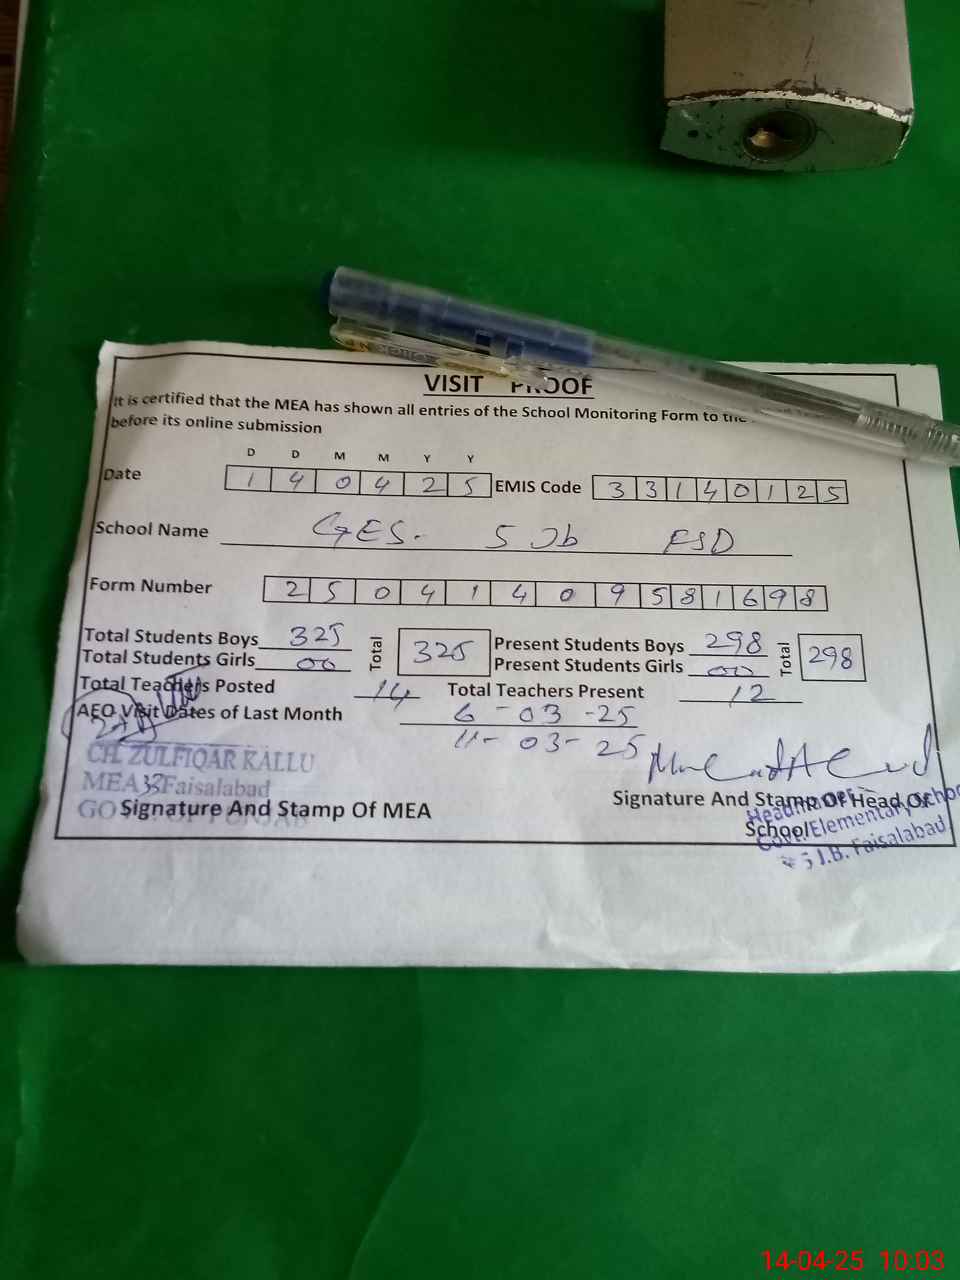 VISIT PROOF
It is certified that the MEA has shown all entries of the School Monitoring Form to the
before its online submission
D D M M Y Y
Date 1 4 0 4 2 5 EMIS Code 3 3 1 4 0 1 2 5
School Name GES. 5 Jb FSD
Form Number 2 5 0 4 1 4 0 9 5 8 1 6 9 8
Total Students Boys 325 Total 325 Present Students Boys 298 Total 298
Total Students Girls 00 Present Students Girls 00
Total Teachers Posted 14 Total Teachers Present 12
AEO Visit Dates of Last Month 6-03-25
11-03-25
CH. ZULFIQAR KALLU
MEA 33 Faisalabad
Signature And Stamp Of MEA
Signature And Stamp Of Head Of
School
Headmaster
Govt. Elementary School
5 J.B. Faisalabad
14-04-25 10:03